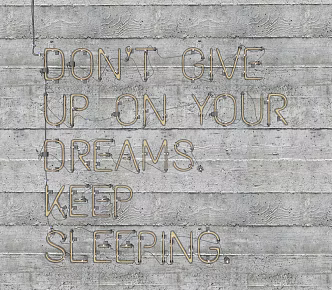 DON'T GIVE
UP ON YOUR
DREAMS.
KEEP
SLEEPING.